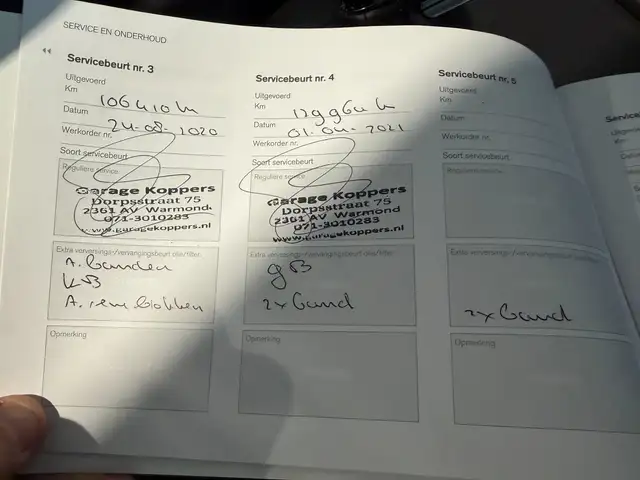 SERVICE EN ONDERHOUD
Servicebeurt nr. 3
Uitgevoerd
Km 106410 km
Datum 24-08-2020
Werkorder nr.
Soort servicebeurt
Reguliere service
Garage Koppers
Dorpsstraat 75
2361 AV Warmond
071-3010283
www.garagekoppers.nl
Extra verversings-/vervangingsbeurt olie/filter
A. banden
KB
A. remblokken
Opmerking
Servicebeurt nr. 4
Uitgevoerd
Km 129964 k
Datum 01-04-2021
Werkorder nr.
Soort servicebeurt
Reguliere service
Garage Koppers
Dorpsstraat 75
2361 AV Warmond
071-3010283
www.garagekoppers.nl
Extra verversings-/vervangingsbeurt olie/filter
gB
2x band
Opmerking
Servicebeurt nr. 5
Uitgevoerd
Km
Datum
Werkorder nr.
Soort servicebeurt
Reguliere service
Extra verversings-/vervangingsbeurt olie/filter
2x band
Opmerking